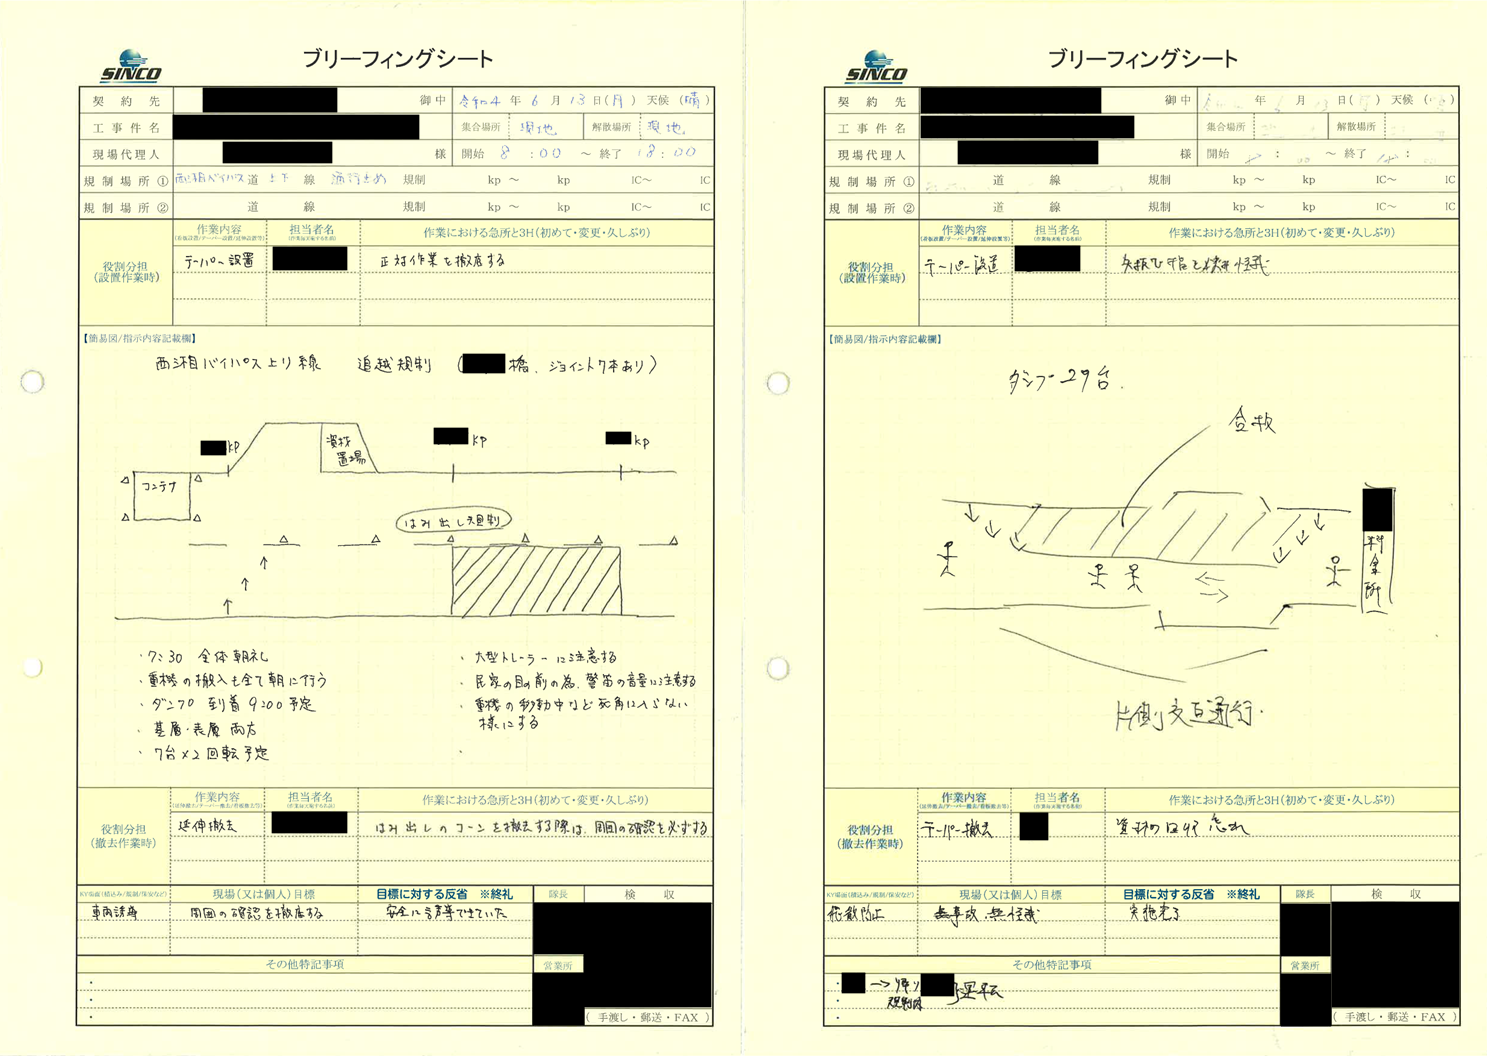 SINCO
ブリーフィングシート
契約先 御中 令和4年 6月 13日(月) 天候(晴)
工事件名 集合場所 現地 解散場所 現地
現場代理人 様 開始 8:00 ~ 終了 18:00
規制場所① 西湘バイパス道 上下線 通行止め 規制 kp ~ kp IC~ IC
規制場所② 道 線 規制 kp ~ kp IC~ IC
役割分担
(設置作業時)
作業内容 担当者名 作業における急所と3H(初めて・変更・久しぶり)
テーパー設置 正対作業を徹底する
【簡易図/指示内容記載欄】
西湘バイパス上り線 追越規制 ( 橋、ジョイント7本あり)
kp
kp
kp
資材
置場
コンテナ
はみ出し規制
・7:30 全体朝礼
・重機の搬入も全て朝に行う
・ダンプ 到着9:00予定
・基層・表層 両方
・7台×2回転予定
・大型トレーラーに注意する
・民家の目の前の為、警笛の音量に注意する
・重機の移動中など死角に入らない
様にする
役割分担
(撤去作業時)
作業内容 担当者名 作業における急所と3H(初めて・変更・久しぶり)
延伸撤去 はみ出しのコーンを撤去する際は、周囲の確認を必ずする
現場(又は個人)目標 目標に対する反省 ※終礼 隊長 検収
車両誘導 周囲の確認を徹底する 安全に誘導できていた
その他特記事項 営業所
(手渡し・郵送・FAX)
SINCO
ブリーフィングシート
契約先 御中 年 6月 13日 天候
工事件名 集合場所 解散場所
現場代理人 様 開始 : ~ 終了 :
規制場所① 道 線 規制 kp ~ kp IC~ IC
規制場所② 道 線 規制 kp ~ kp IC~ IC
役割分担
(設置作業時)
作業内容 担当者名 作業における急所と3H(初めて・変更・久しぶり)
テーパー設置
【簡易図/指示内容記載欄】
ダンプ 29台.
料金所
片側交互通行.
役割分担
(撤去作業時)
作業内容 担当者名 作業における急所と3H(初めて・変更・久しぶり)
テーパー撤去 資材の回収忘れ
現場(又は個人)目標 目標に対する反省 ※終礼 隊長 検収
飛散防止 無事故、無怪我 実施完了
その他特記事項 営業所
→ 帰り 運転
規制内
(手渡し・郵送・FAX)